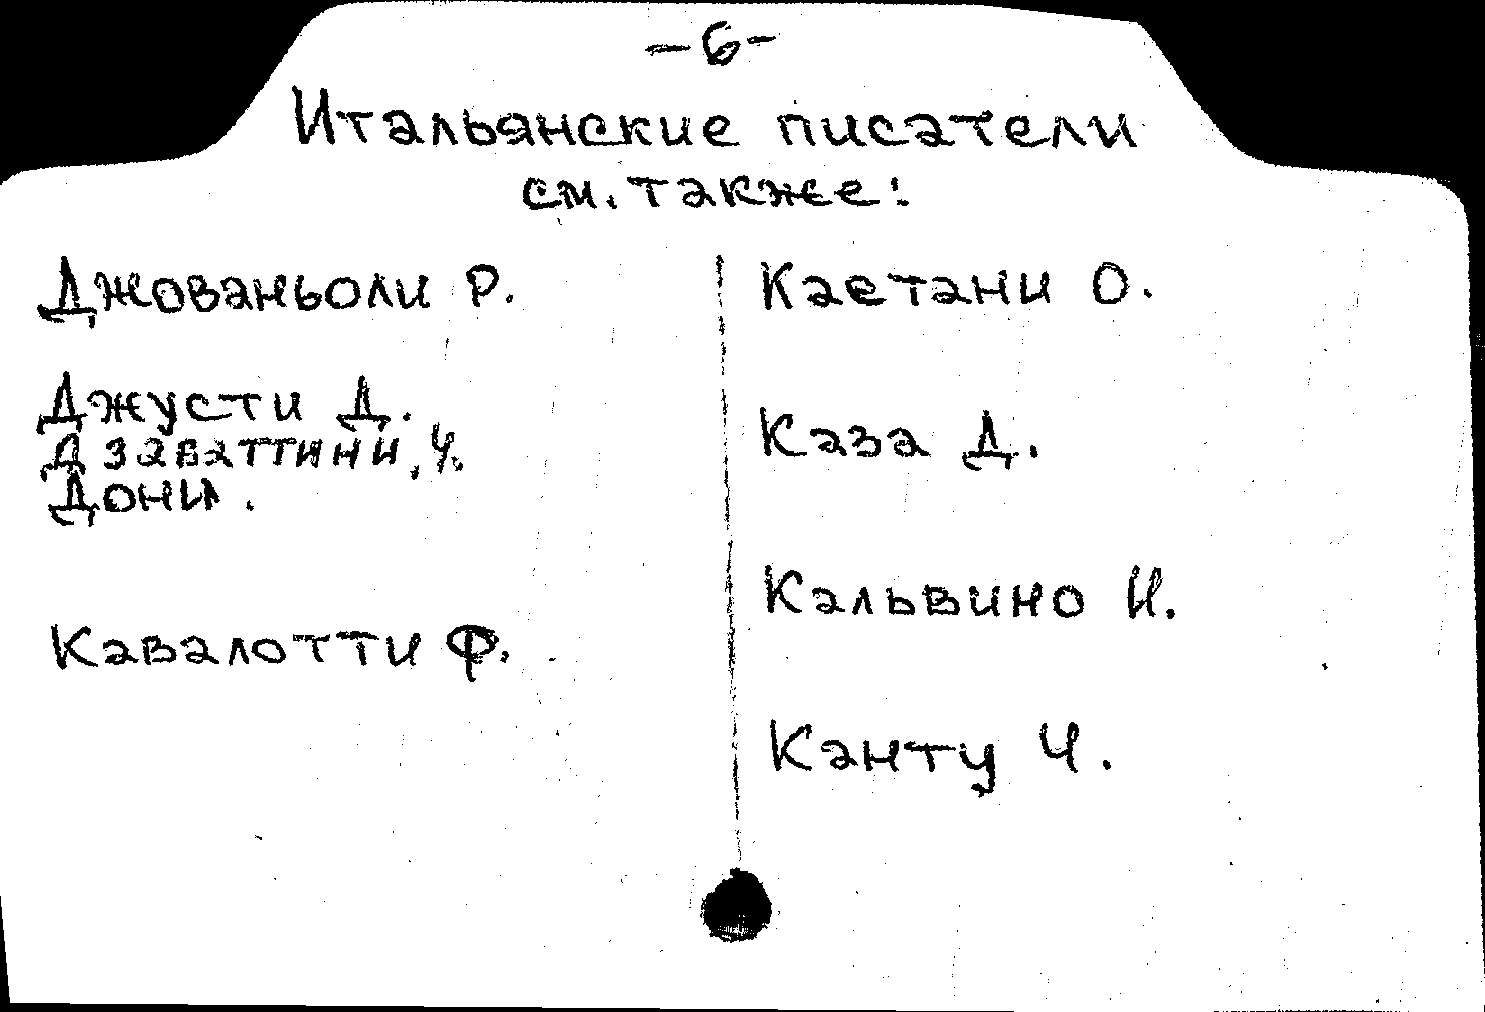 -6-
Итальянские писатели
см. также:
Джованьоли Р.
Джусти Д.
Дзаваттини, Ч.
Кавалотти Ф.
Каетани О.
Каза Д.
Кальвино И.
Канту Ч.